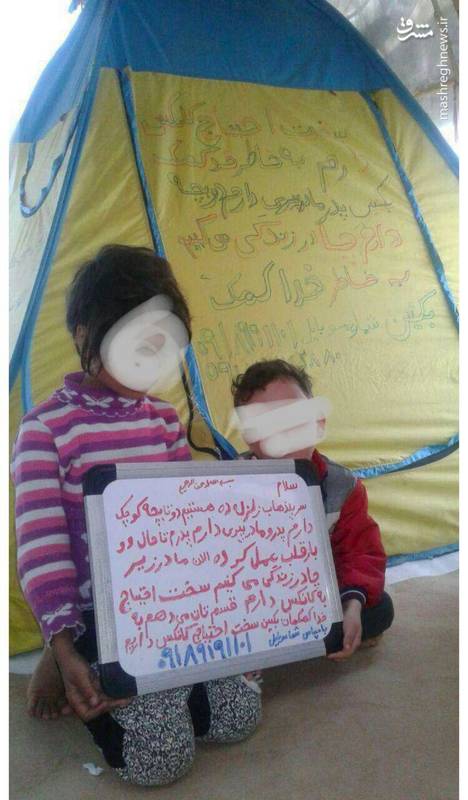 مشرق
mashreghnews.ir
سخت احتیاج کانکس
دارم به خاطر خدا کمک
بکنین پدر مادر پیری دارم دو بچه
دارم چادر زندگی می کنیم
به خاطر خدا کمک
بکنین شماره موبایل
سلام
سرپلذهاب زلزله ده هستیم دو تا بچه کوچک
دارم پدر و مادر پیری دارم پدرم تا حال دو
بار قلب عمل کرده الان ما در زیر
چادر زندگی می کنیم سخت احتیاج
به کانکس دارم قسم تان می دهم به
خدا کمکمان بکنین سخت احتیاج کانکس داریم
با سپاس شماره موبایل
09189191101